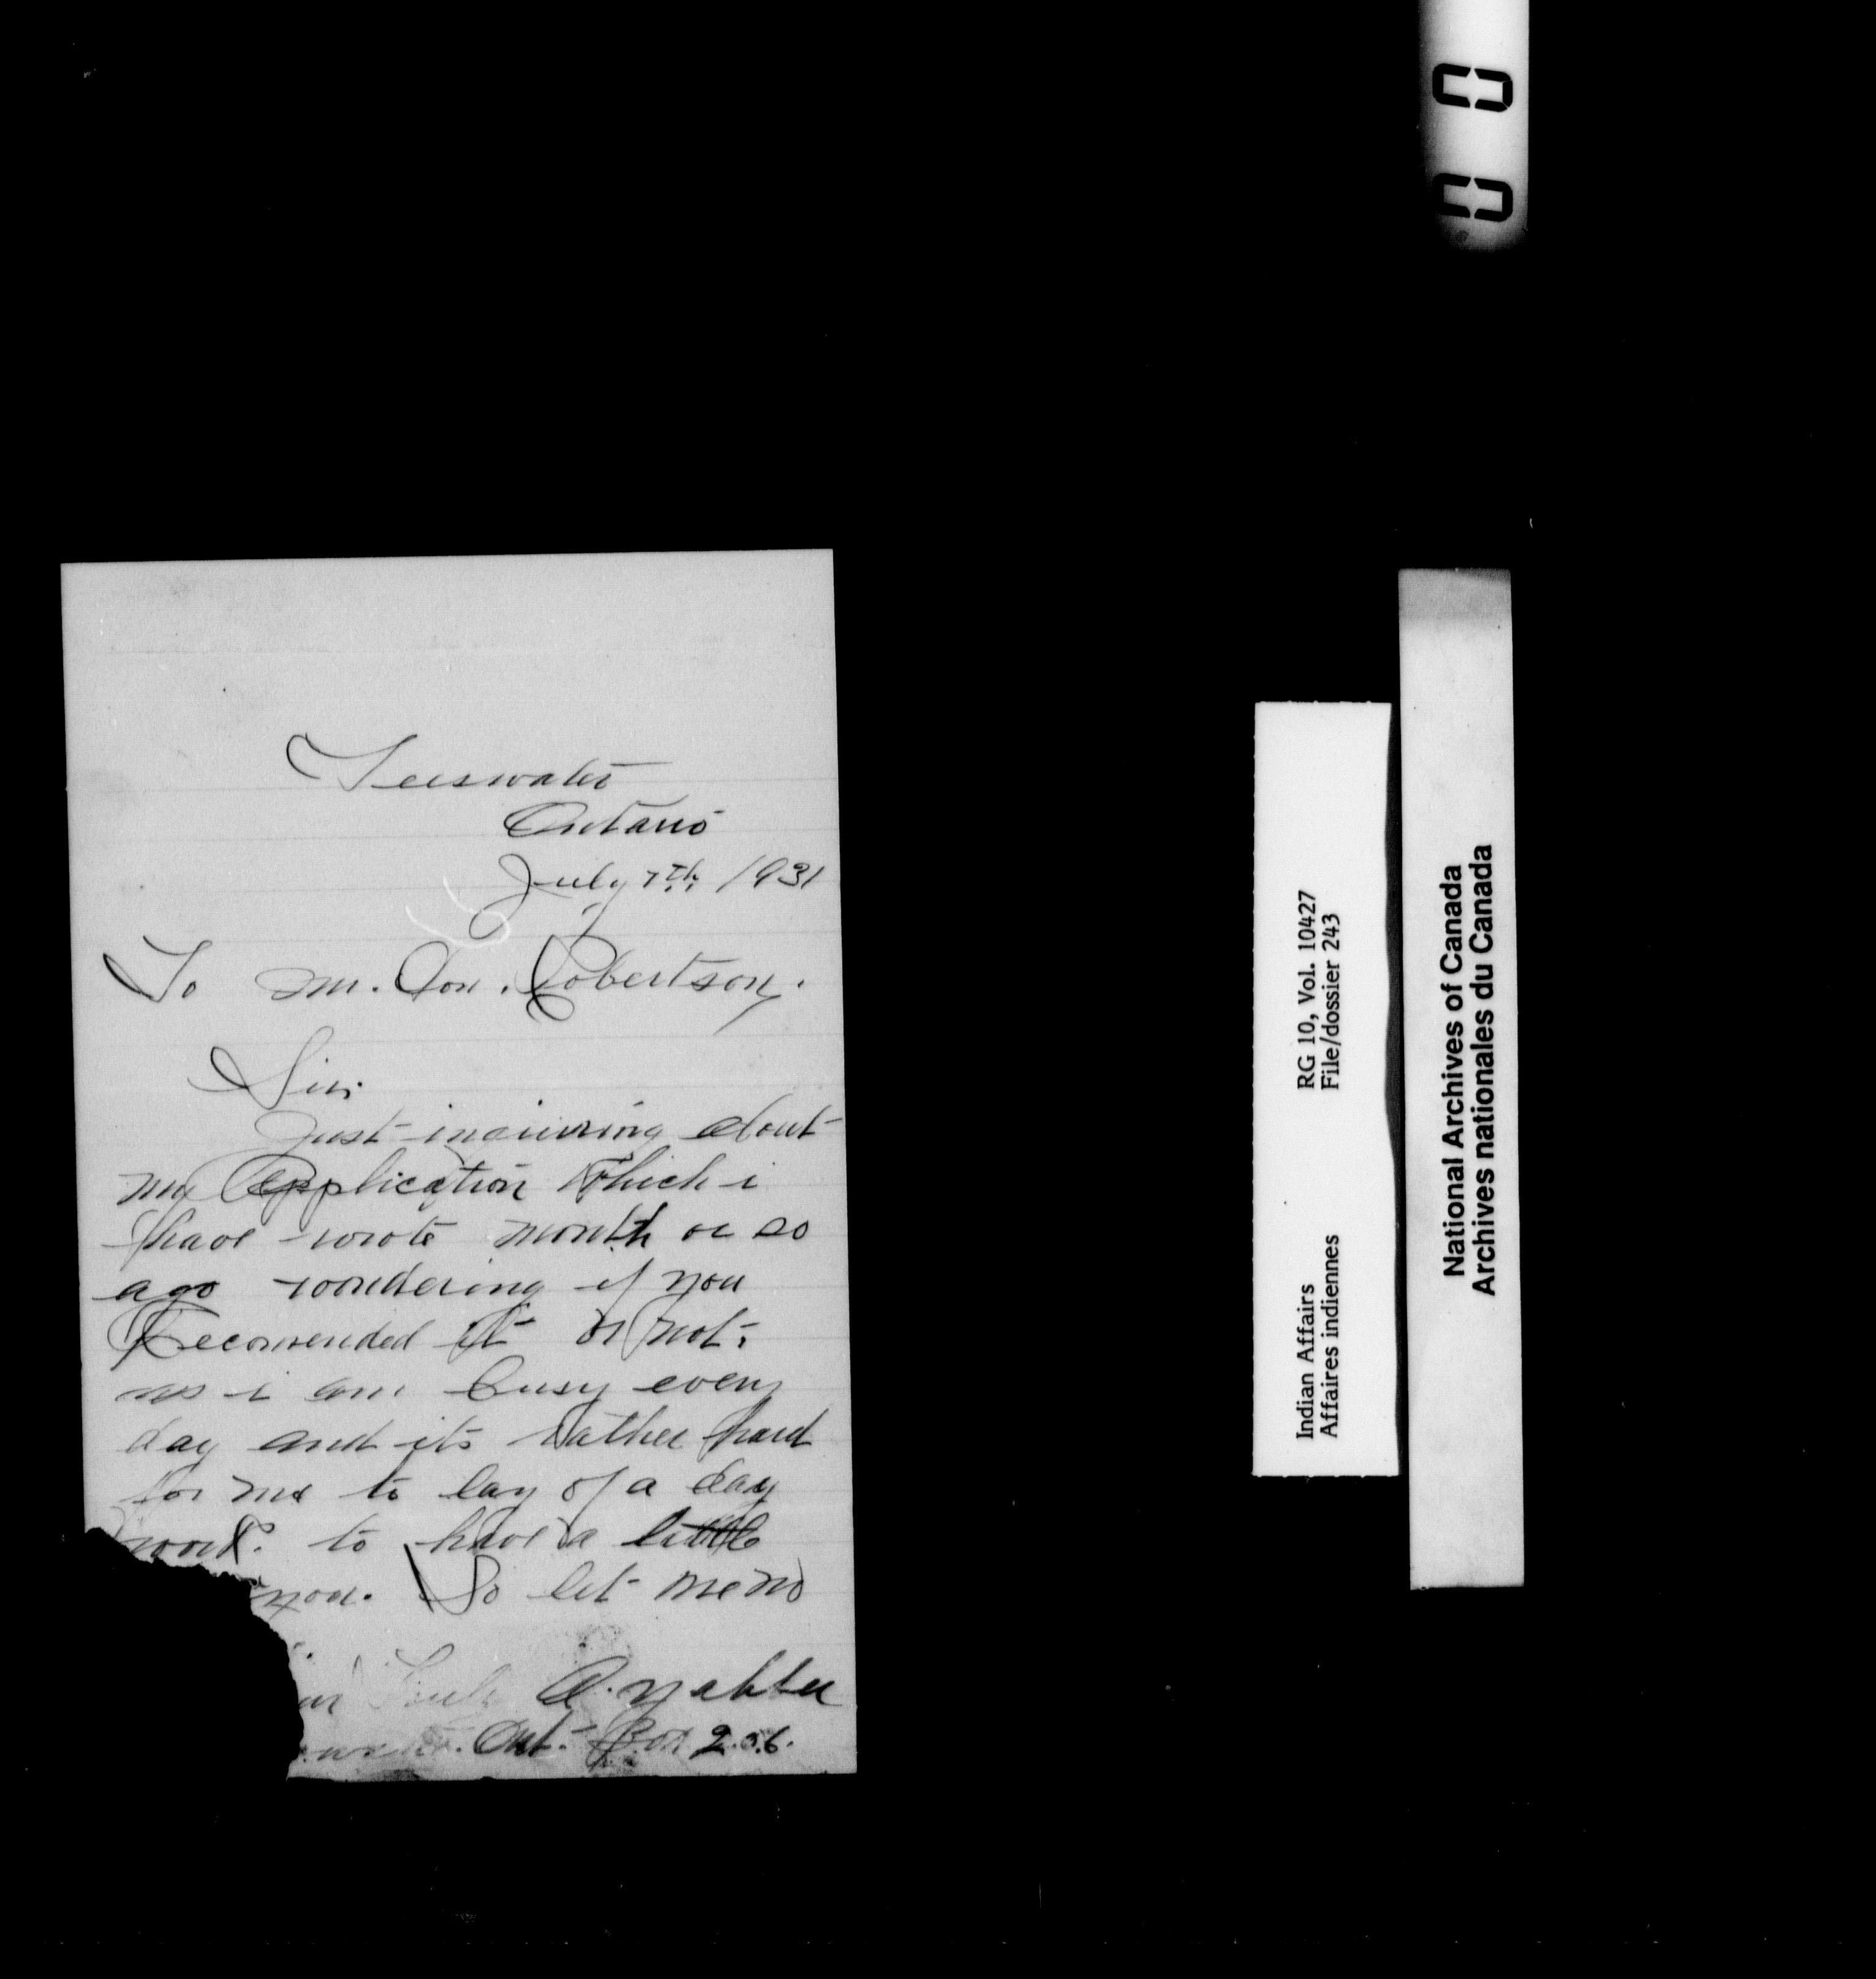 Teeswater
Ontario
July 7th 1931
To Mr. Con. Robertson.
Sir.
Just inquiring about
my Application Which i
have wrote month or so
ago wondering if you
Recomended it or not.
as i am busy every
day and its rather hard
for me to lay of a day
work. to have a little
you. So let me no
A. Yahba
Ont. Box 206.
Indian Affairs RG 10, Vol. 10427
Affaires indiennes File/dossier 243
National Archives of Canada
Archives nationales du Canada
0 0